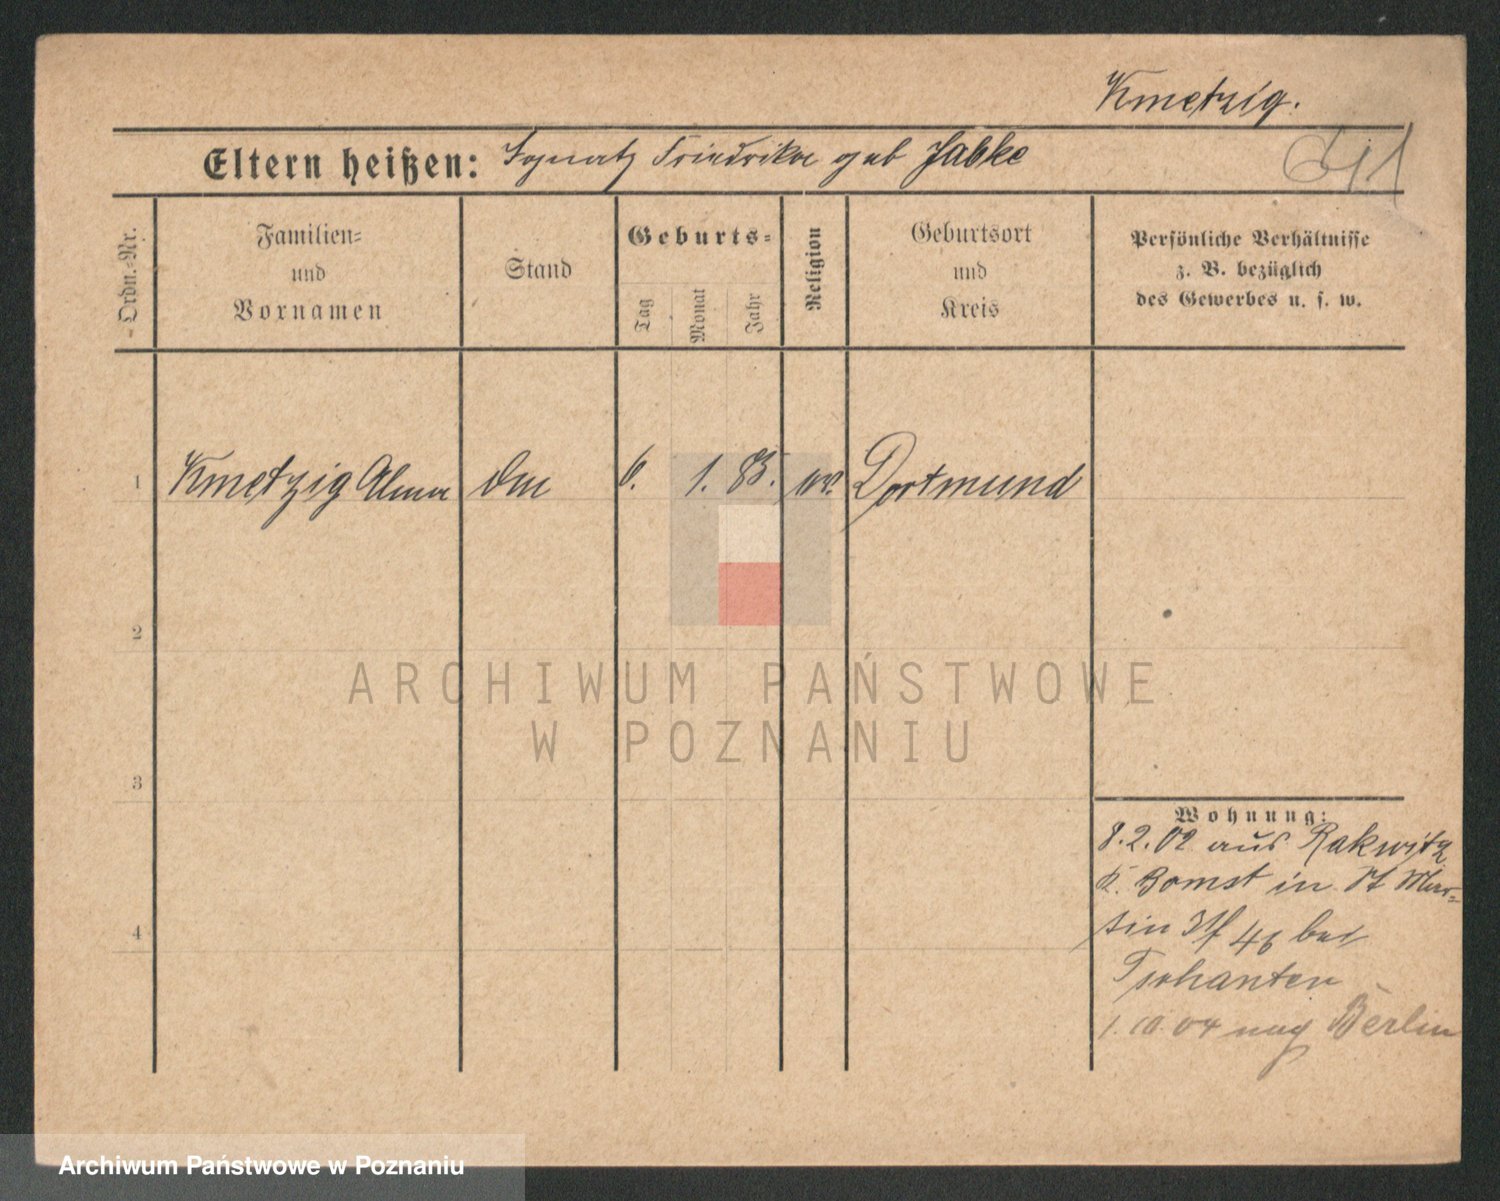 Kmetzig.
Eltern heißen: Ignatz Friedrike geb Jabke
Ordn.-Nr.
Familien-
und
Vornamen
Stand
Geburts-
Tag
Monat
Jahr
Religion
Geburtsort
und
Kreis
Persönliche Verhältnisse
z. B. bezüglich
des Gewerbes u. s. w.
1 Kmetzig Alma 6. 1. 83. ev. Dortmund
2
3
4
Wohnung:
8.2.02 aus Rakwitz
K. Bomst in St Mar-
tin 46 bei
1.10.04 nach Berlin
ARCHIWUM PAŃSTWOWE
W POZNANIU
Archiwum Państwowe w Poznaniu